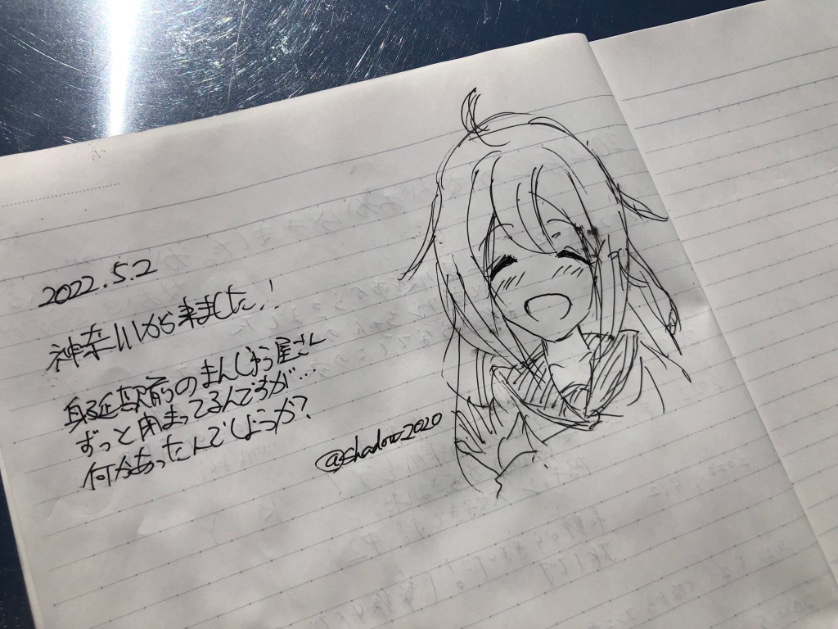 2022.5.2
神奈川から来ました!
身延駅前のまんじゅう屋さん
ずっと閉まってるんですが…
何かあったんでしょうか?
@shadow2020